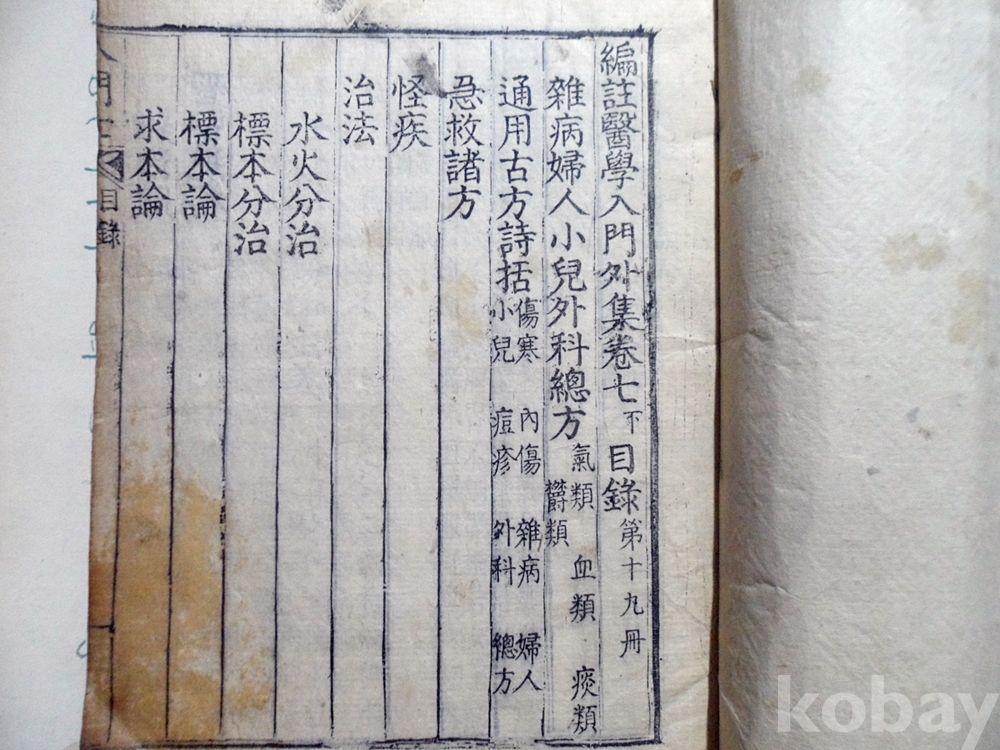 編註醫學入門外集卷七 下 目錄 第十九冊
雜病婦人小兒外科總方 氣類 血類 痰類
欝類
通用古方詩括 傷寒 內傷 雜病 婦人
小兒 痘疹 外科 總方
急救諸方
怪疾
治法
水火分治
標本分治
標本論
求本論
入門 目錄
kobay